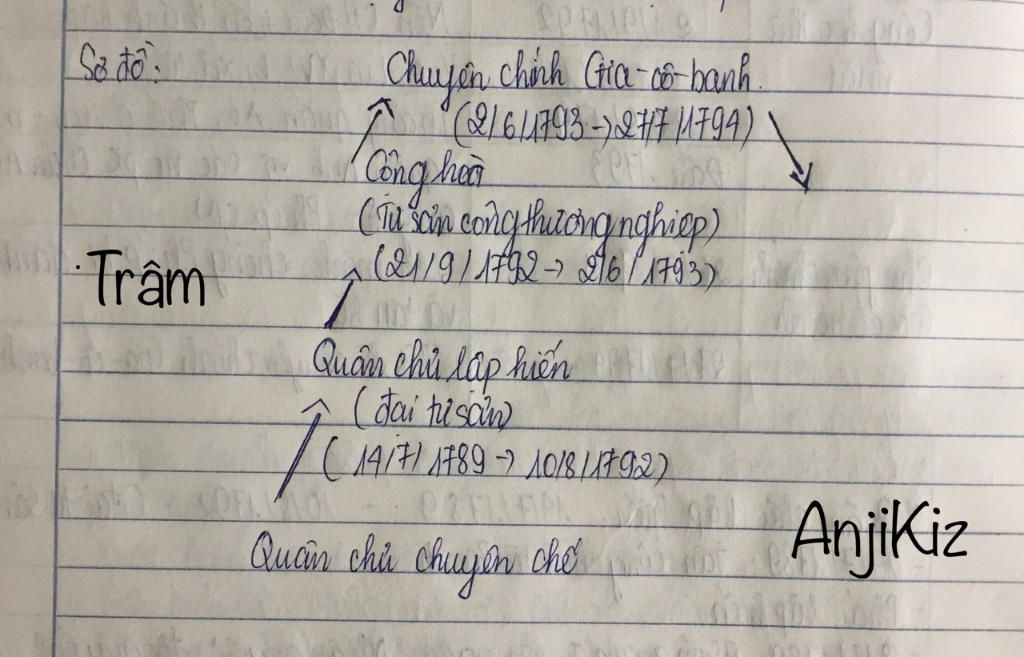 Sơ đồ:
Chuyên chính Gia-cô-banh.
(2/6/1793→27/7/1794)
Cộng hoà
(Tư sản công thương nghiệp)
(21/9/1792→2/6/1793)
Trâm
Quân chủ lập hiến
(đại tư sản)
(14/7/1789→10/8/1792)
AnjiKiz
Quân chủ chuyên chế